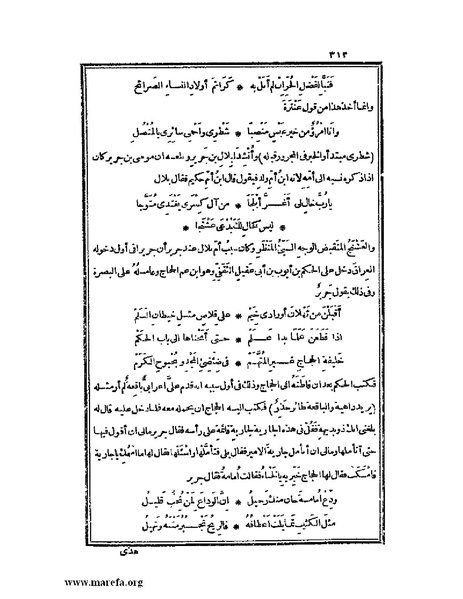 ٣١٣
فتبا لفضل الحران لم أمل به * كرائم أولاد النساء الصرائح
وانما أخذ هذا من قول عنترة
وأنا امرؤ من خير عبس منصبا * شطرى وأحمى سائرى بالمنصل
(شطرى مبتدأ والخبر فى المجرور قبله) وأنشد لبلال بن جرير وبلغه ان موسى بن جرير كان
اذا ذكره نسبه الى أمه لانه ابن أم ولد فيقول قال ابن أم حكيم فقال بلال
يا رب خال لى أغر أبلجا * من آل كسرى يغتدى متوجا
* ليس كخال لك يدعى عشنجا *
والعشنج المتقبض الوجه السيئ المنظر وكان سبب أم بلال عند جرير أن جريرا فى أول دخوله
العراق دخل على الحكم بن أيوب بن أبى عقيل الثقفى وهو ابن عم الحجاج وعامله على البصرة
وفى ذلك يقول جرير
أقبلن من ثهلان أو وادى خيم * على قلاص مثل خيطان السلم
اذا قطعن علما بدا علم * حتى أنخناها الى باب الحكم
خليفة الحجاج غير المتهم * فى ضئضئ المجد وبحبوح الكرم
فكتب الحكم بعد ان فاطنه الى الحجاج وذلك فى أول سببه انه قدم على أعرابى باقعة لم أر مثله
(يريد داهية والباقعة طائر حذر) فكتب اليه الحجاج ان يحمله معه فلما دخل عليه قال له
بلغنى انك ذو بديهة فقل فى هذه الجارية لجارية قائمة على رأسه فقال جرير مالى ان أقول فيها
حتى أتأملها ومالى ان أتأمل جارية الامير فقال بلى فتأملها واسئلها فقال لها ما اسمك يا جارية
فأمسكت فقال لها الحجاج خبريه يا لخناء فقالت أمامة فقال جرير
ودع أمامة حان منك رحيل * ان الوداع لمن تحب قليل
مثل الكثيب تمايلت أعطافه * فالريح تجبر متنه وتهيل
هذى
www.marefa.org